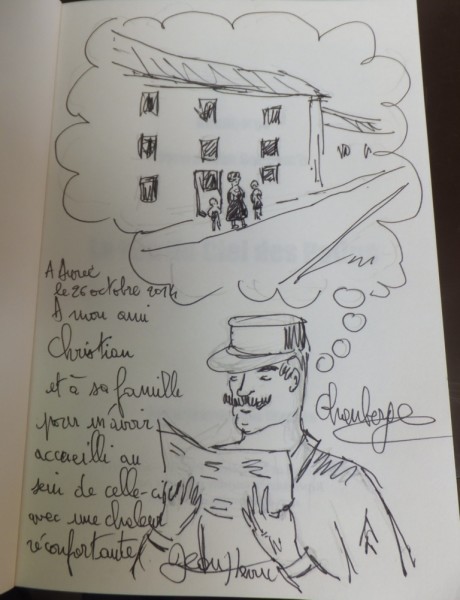 A Aurec
le 26 octobre 2014
A mon ami
Christian
et à sa famille
pour m'avoir
accueilli au
sein de celle-ci
avec une chaleur
réconfortante
Jean Henri